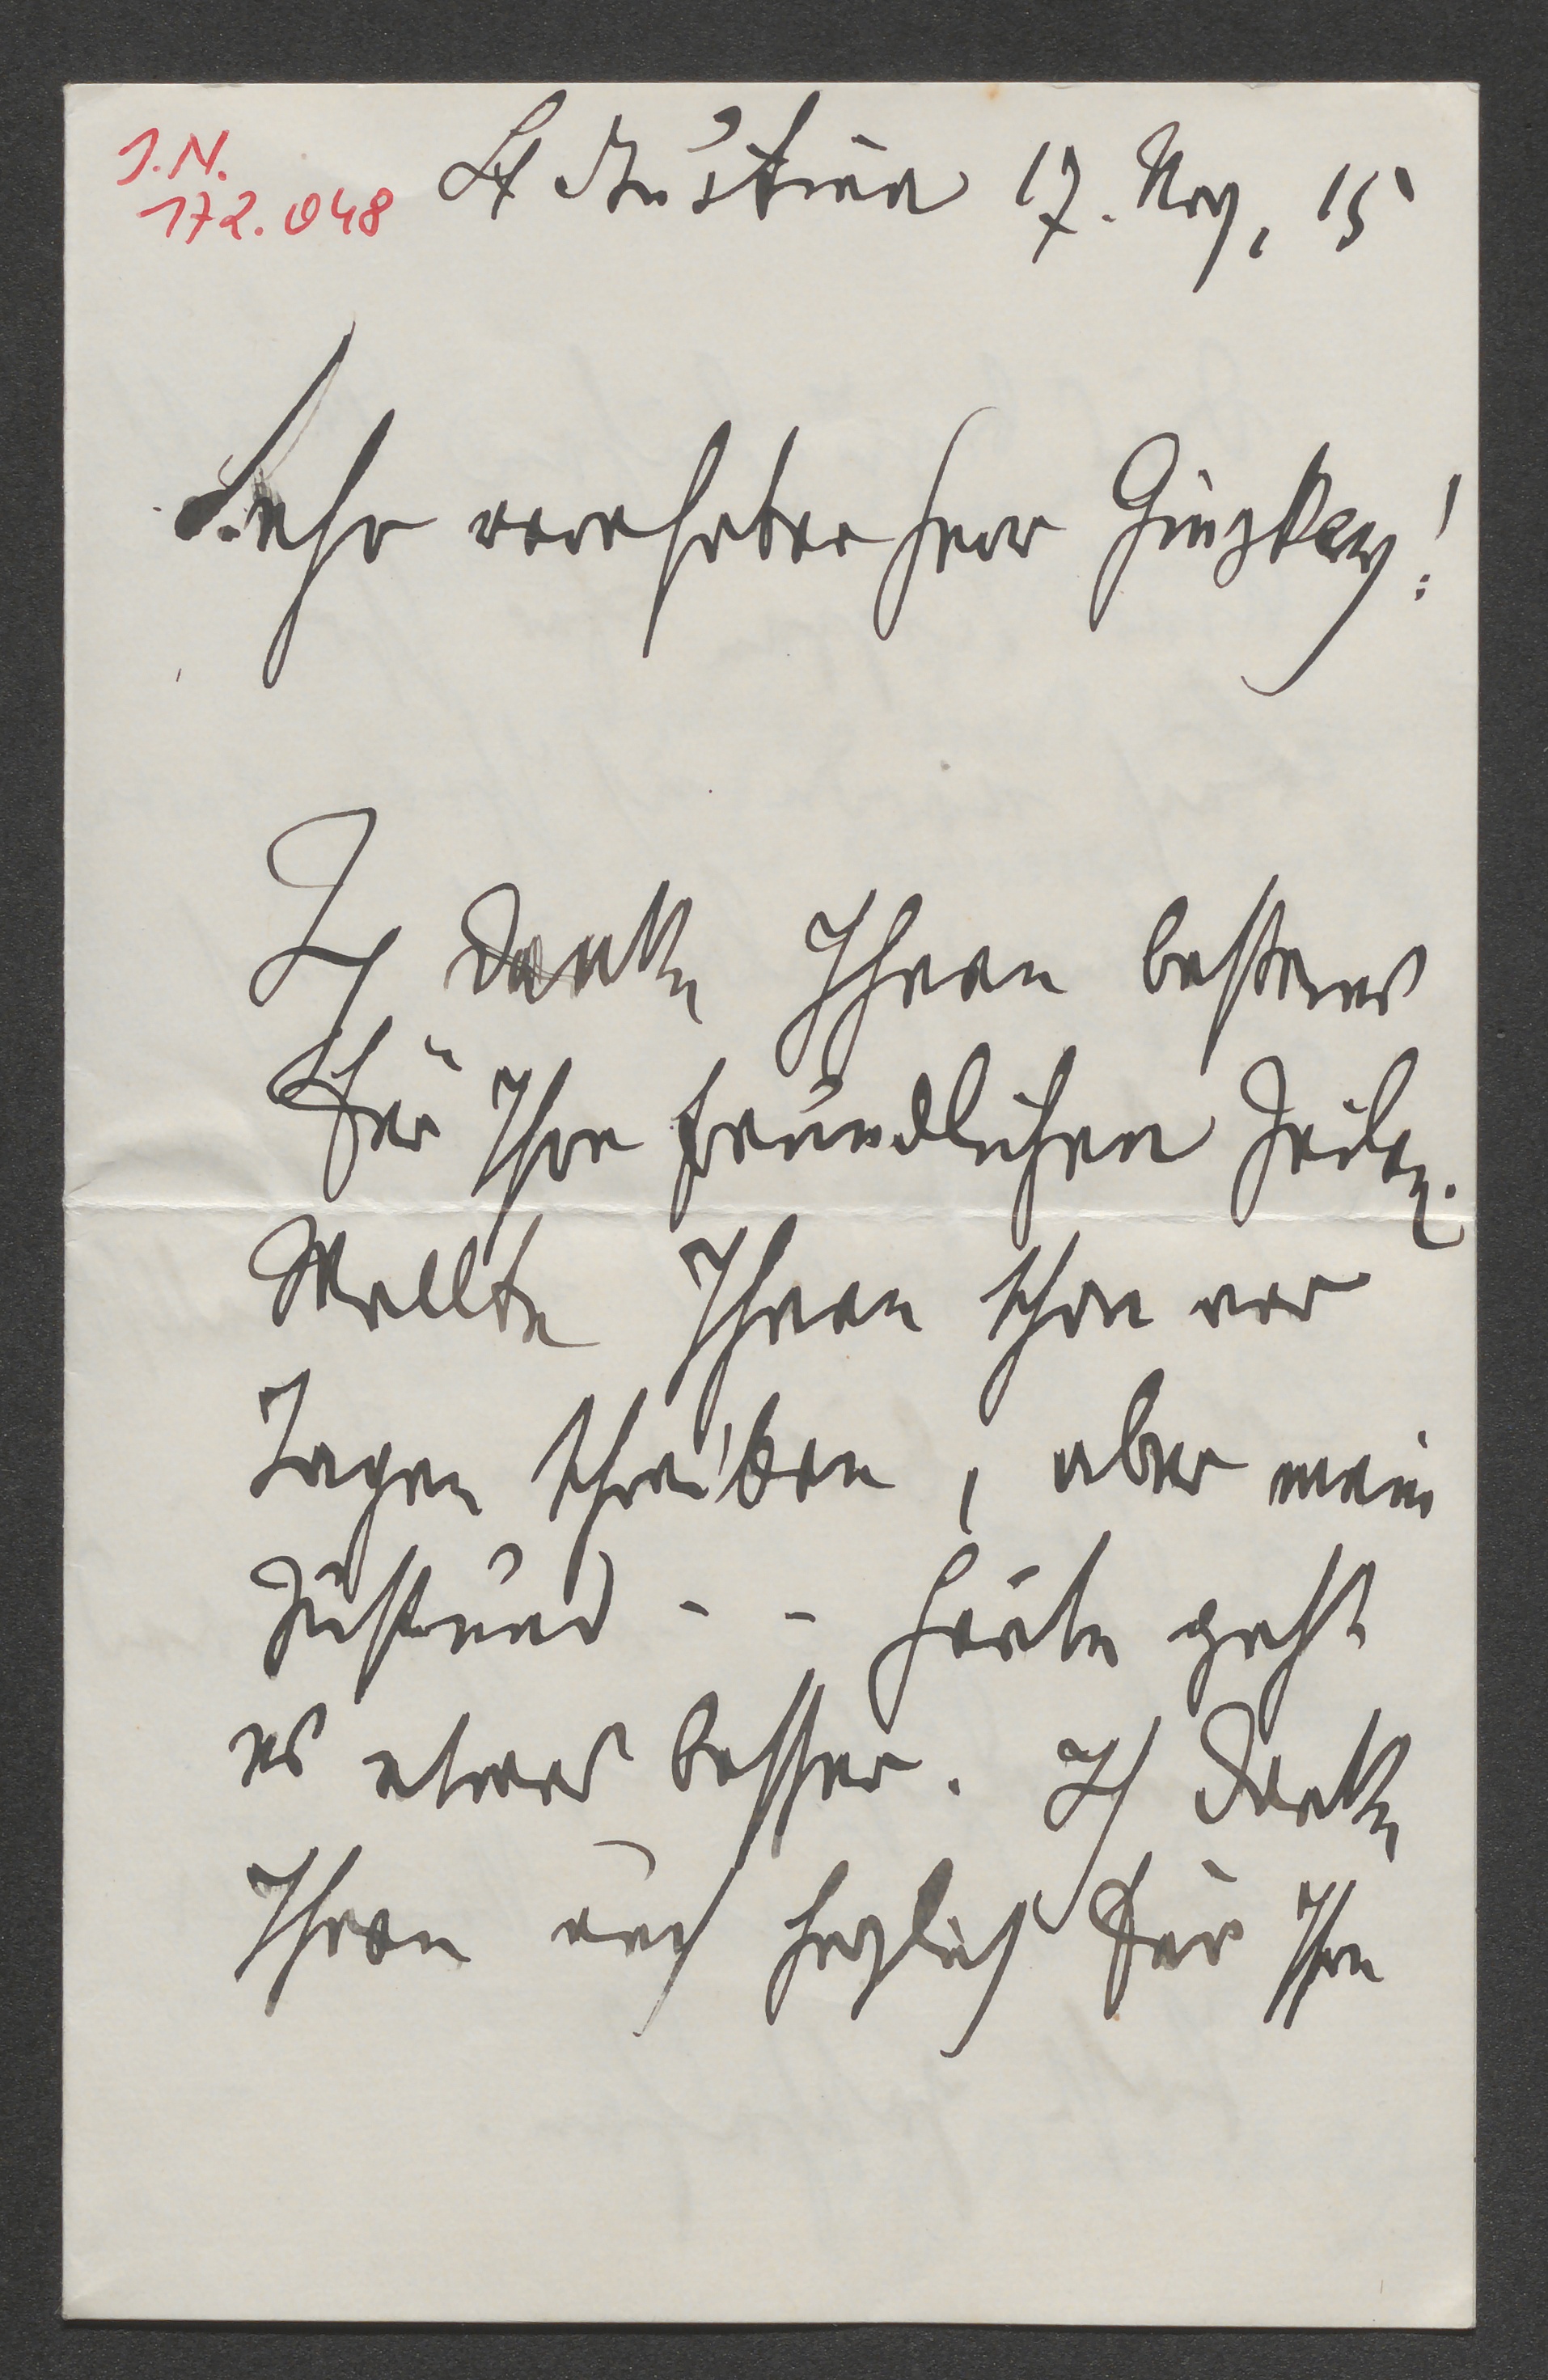 I.N.
172.048
17. Nov, 15
Sehr verehrter Herr Ginzkey!
Ich danke Ihnen bestens
für Ihre freundlichen Zeilen.
Wollte Ihnen schon vor
Tagen schreiben, aber mein
Zustand - - Heute geht
es etwas besser. Ich danke
Ihnen auch herzlich für Ihre